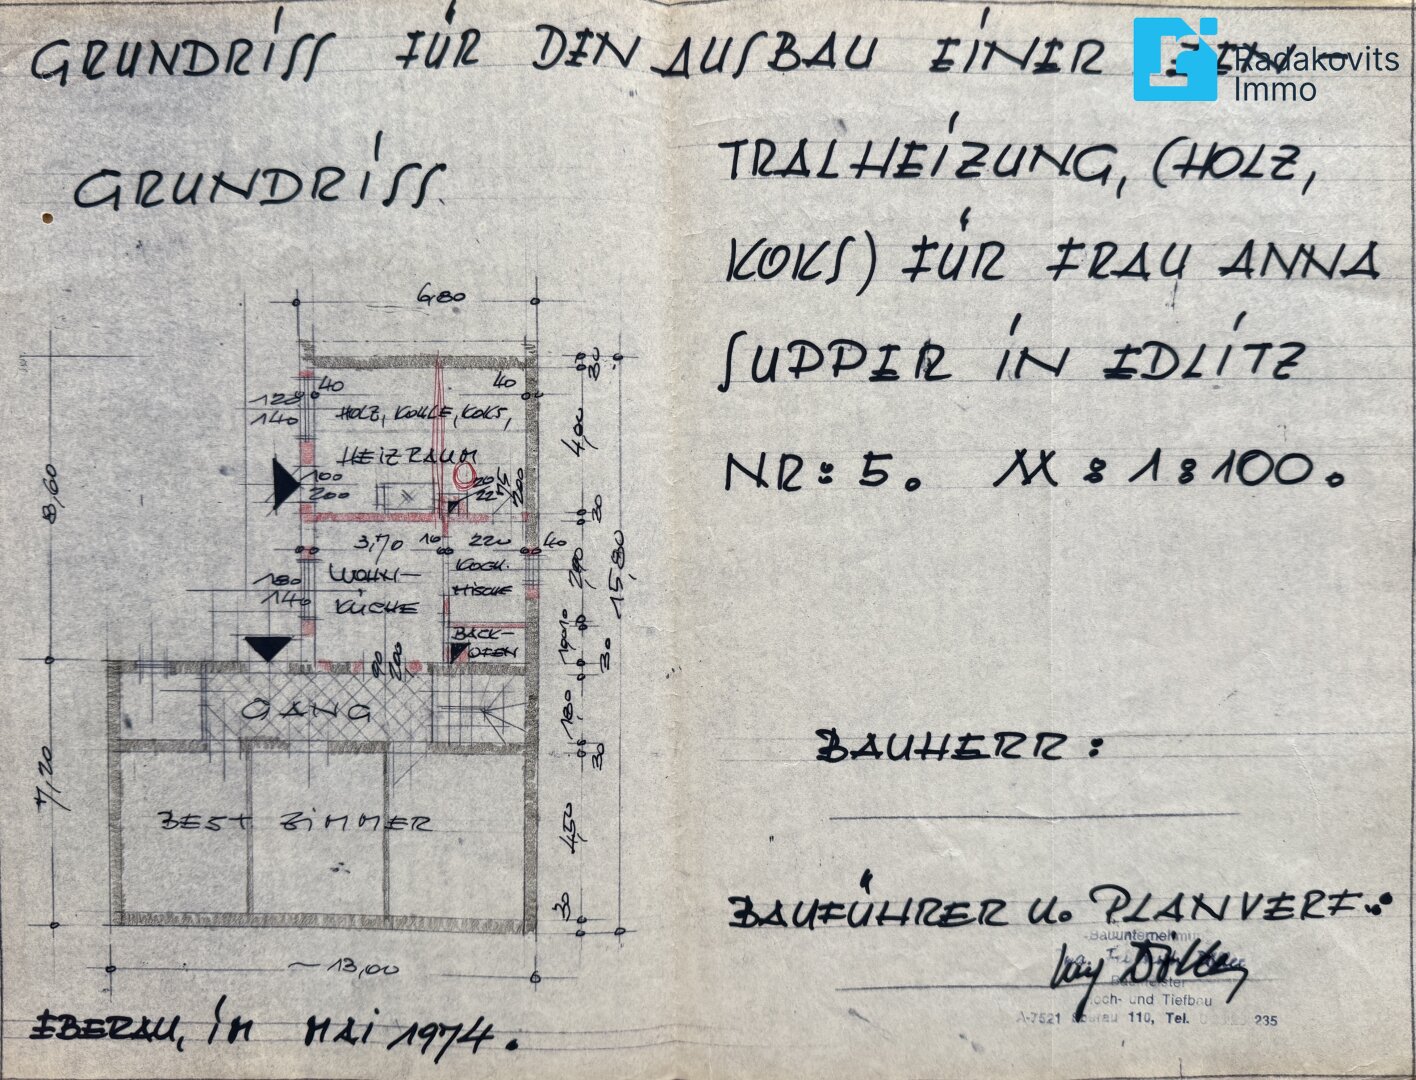 GRUNDRISS FÜR DEN AUSBAU EINER ZEN-
Radakovits
Immo
TRALHEIZUNG, (HOLZ,
GRUNDRISS.
KOKS) FÜR FRAU ANNA
SUPPER IN EDLITZ
NR: 5. M: 1:100.
6,80
30
40
40
120
140
HOLZ, KOHLE, KOKS,
HEIZRAUM
4,00
100
200
20
22
75
200
8,60
30
3,70
10
220
40
WOHN-
KÜCHE
KOCH-
NISCHE
180
140
290
15,80
BACK-
OFEN
10
190
90
200
30
GANG
180
30
7,20
BEST. ZIMMER
450
30
~13,00
EBERAU, IM MAI 1974.
BAUHERR:
BAUFÜHRER U. PLANVERF.:
Bauunternehmung
Baumeister
Hoch- und Tiefbau
A-7521 Eberau 110, Tel. 235